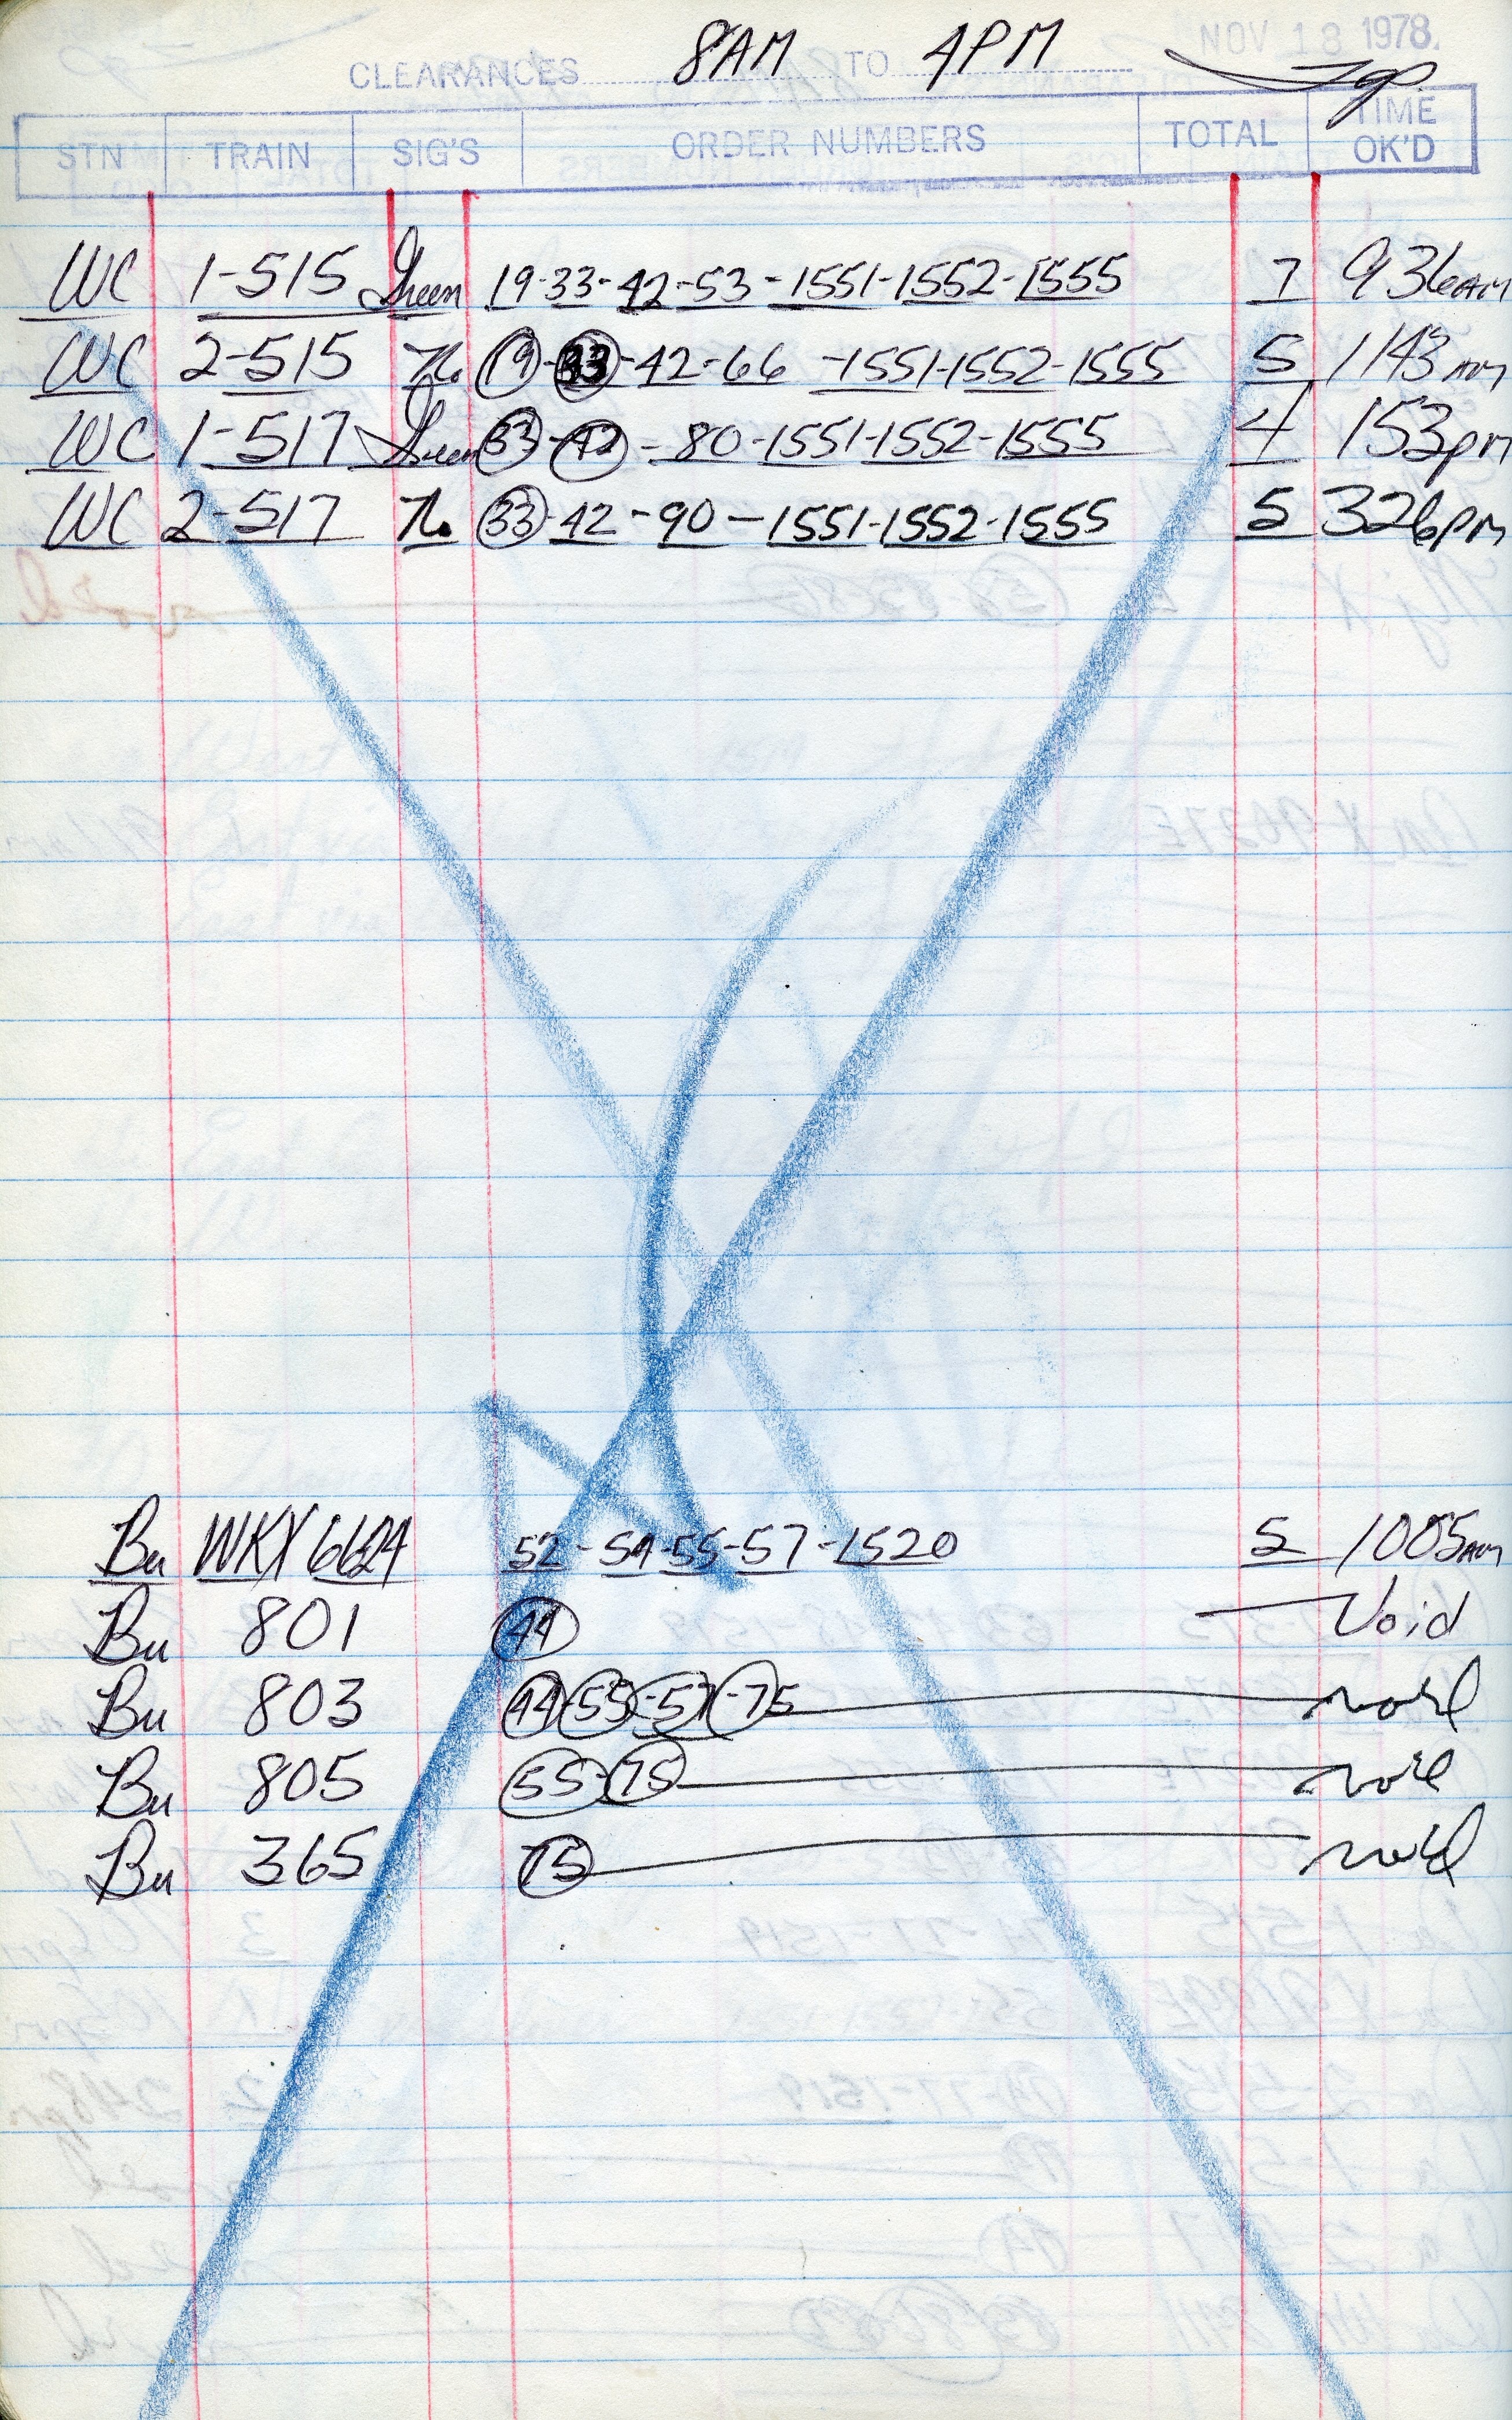 NOV 18 1978
CLEARANCES 8AM TO 4PM
STN TRAIN SIG'S ORDER NUMBERS TOTAL TIME OK'D
WC 1-515 Green 19-33-42-53-1551-1552-1555 7 936AM
WC 2-515 No 19-33-42-66-1551-1552-1555 5 1143AM
WC 1-517 Green 33-42-80-1551-1552-1555 4 153PM
WC 2-517 No 33-42-90-1551-1552-1555 5 326PM
Bu WKX 6624 52-54-55-57-1520 5 1005AM
Bu 801 44 Void
Bu 803 44-55-57-75 void
Bu 805 55-75 void
Bu 365 75 void